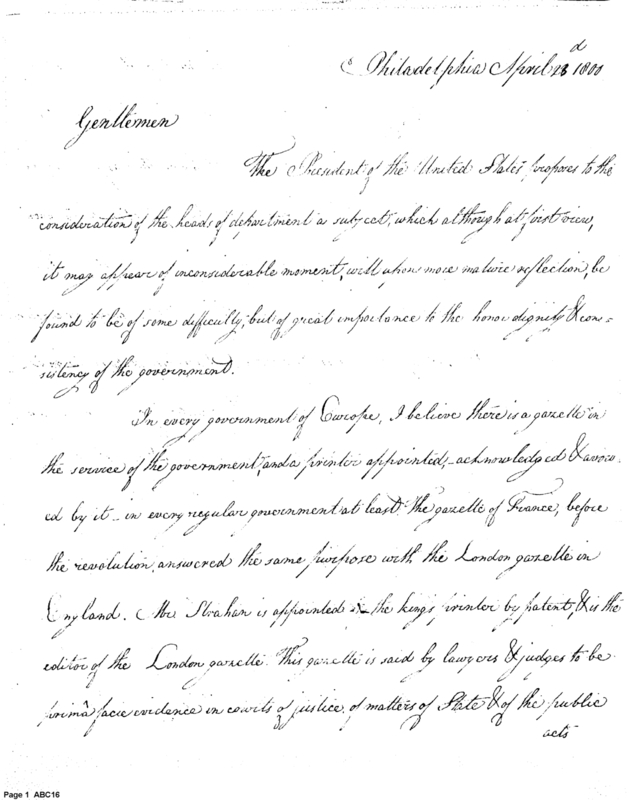 Philadelphia April 23d 1800
Gentlemen
The President of the United States proposes to the
consideration of the heads of department a subject, which although at first view,
it may appear of inconsiderable moment, will upon more mature reflection, be
found to be of some difficulty, but of great importance to the honor dignity & con=
sistency of the government.
In every government of Europe, I believe there is a gazette in
the service of the government, and a printer appointed, acknowledged & avow
ed by it - in every regular government at least. The gazette of France, before
the revolution, answered the same purpose with the London gazette in
England. Mr Strahan is appointed the kings printer by patent, & is the
editor of the London gazette. This gazette is said by lawyers & judges to be
primâ facie evidence in courts of justice, of matters of State & of the public
acts
Page 1 ABC16